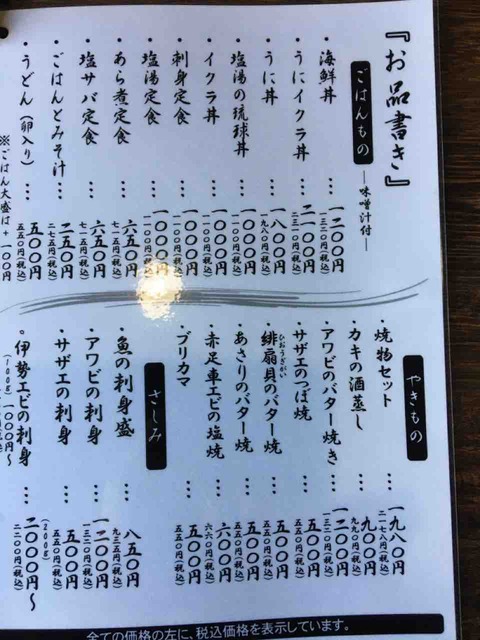 『お品書き』
ごはんもの
―味噌汁付―
・海鮮丼 … 一二〇〇円
一三二〇円(税込)
・うにイクラ丼 … 二一〇〇円
二三一〇円(税込)
・うに丼 … 一八〇〇円
一九八〇円(税込)
・塩湯の琉球丼 … 一〇〇〇円
一一〇〇円(税込)
・イクラ丼 … 一〇〇〇円
一一〇〇円(税込)
・刺身定食 … 一〇〇〇円
一一〇〇円(税込)
・塩湯定食 … 一〇〇〇円
一一〇〇円(税込)
・あら煮定食 … 六五〇円
七一五円(税込)
・塩サバ定食 … 六五〇円
七一五円(税込)
・ごはんとみそ汁… 二五〇円
二七五円(税込)
・うどん(卵入り) … 五〇〇円
五五〇円(税込)
※ごはん大盛は+一〇〇円
やきもの
・焼物セット … 一九八〇円
二一七八円(税込)
・カキの酒蒸し … 九〇〇円
九九〇円(税込)
・アワビのバター焼き … 一二〇〇円
一三二〇円(税込)
・サザエのつぼ焼 … 五〇〇円
五五〇円(税込)
・緋扇貝のバター焼 … 五〇〇円
ひおうぎがい
五五〇円(税込)
・あさりのバター焼 … 五〇〇円
五五〇円(税込)
・赤足車エビの塩焼 … 六〇〇円
六六〇円(税込)
・ブリカマ … 五〇〇円
五五〇円(税込)
さしみ
・魚の刺身盛 … 八五〇円
九三五円(税込)
・アワビの刺身 … 一二〇〇円
一三二〇円(税込)
・サザエの刺身 … 五〇〇円
五五〇円(税込)
・伊勢エビの刺身 … 二〇〇〇円〜
(200g)
二二〇〇円(税込)
(100g)
一〇〇〇円〜
全ての価格の左に、税込価格を表示しています。